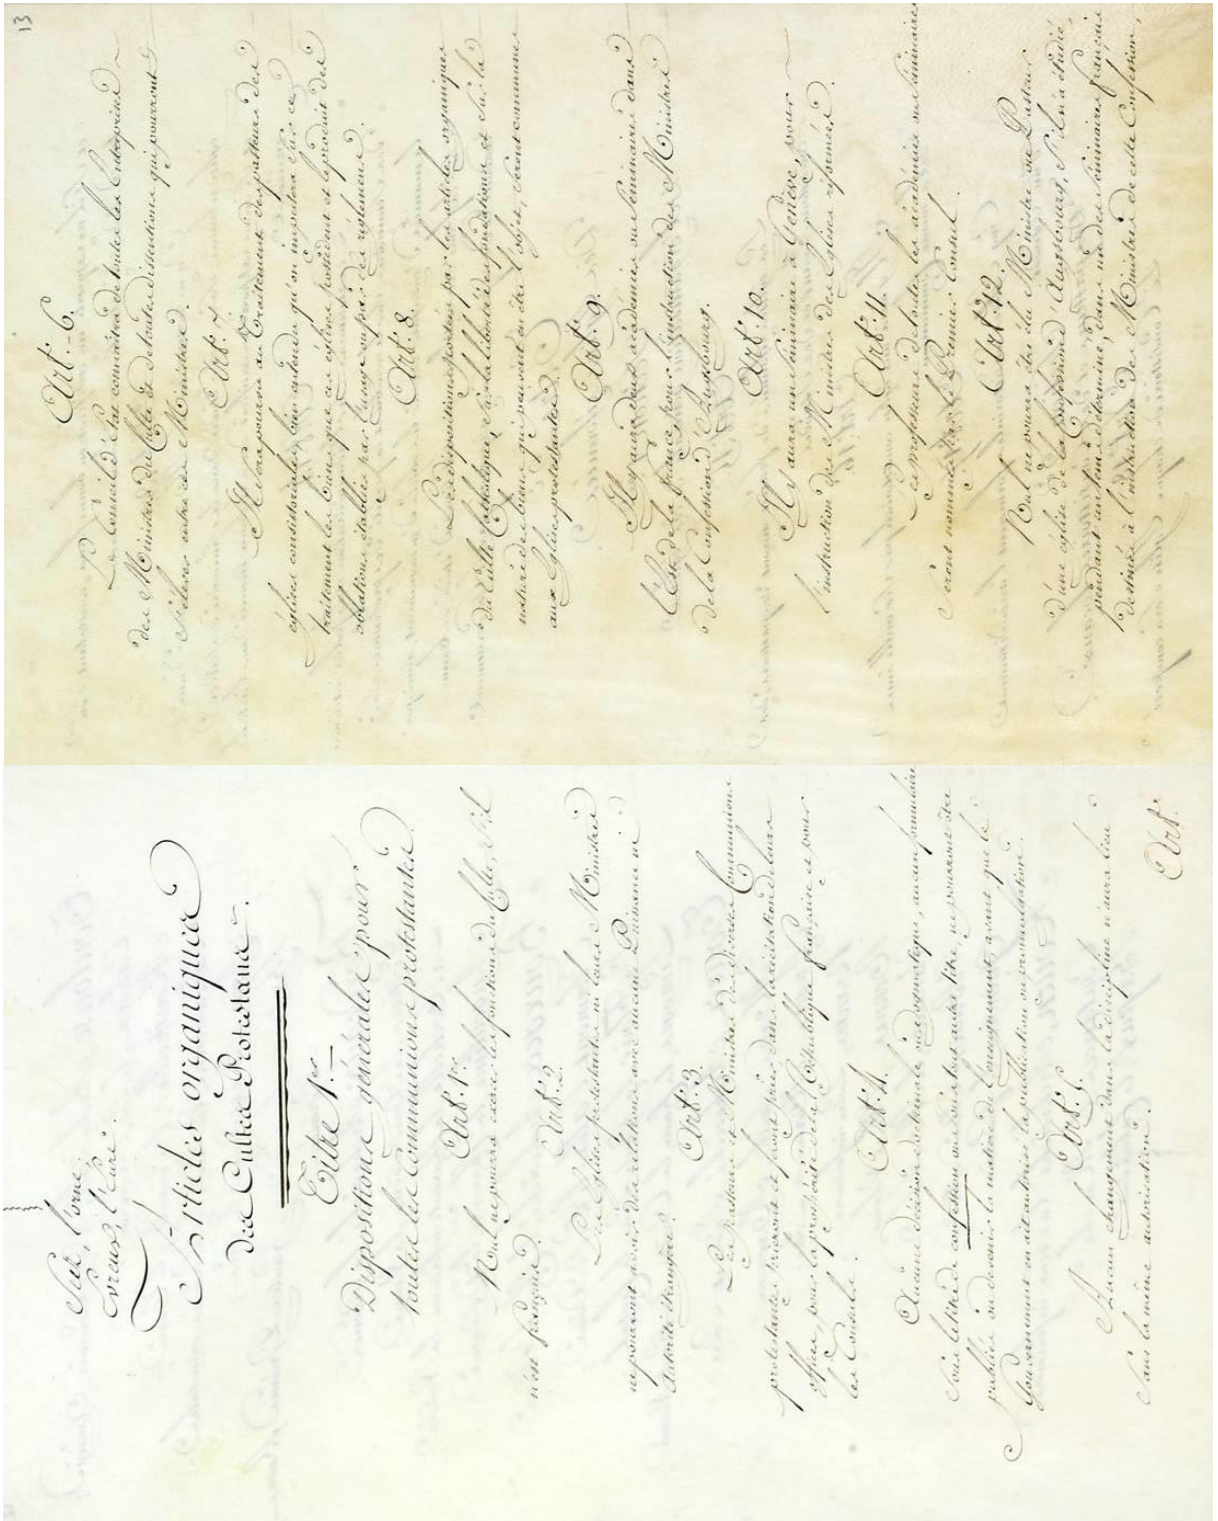 Seez, l'orne.
Evreux, l'Eure.
Articles organiques
des Cultes Protestans.
Titre 1.er
Dispositions générales pour
toutes les Communions protestantes
Art. 1.er
Nul ne pourra exercer les fonctions du Culte, s'il
n'est français.
Art. 2.
Les Eglises protestantes ni leurs Ministres
ne pourront avoir des relations avec aucune Puissance ni
Autorité étrangère.
Art. 3.
Les pasteurs et Ministres des diverses Communions
protestantes prieront et feront prier dans la récitation de leurs
offices, pour la prospérité de la République française et pour
les Consuls.
Art. 4.
Aucune décision doctrinale ou dogmatique, aucun formulaire
sous le titre de confession ou sous tout autre titre, ne pourront être
publiés ou devenir la matière de l'enseignement, avant que le
Gouvernement en ait autorisé la publication ou promulgation.
Art. 5.
Aucun changement dans la discipline n'aura lieu
sans la même autorisation.
Art.
13
Art. 6.
Le Conseil d'état connaîtra de toutes les Entreprises
des Ministres du Culte et de toutes dissentions qui pourront
s'élever entre ces Ministres.
Art. 7.
Il sera pourvu au traitement des pasteurs des
églises consistoriales, bien entendu qu'on imputera sur ce
traitement les biens que ces églises possèdent et le produit des
oblations établies par l'usage ou par des réglemens.
Art. 8.
Les dispositions portées par les articles organiques
du Culte Catholique, sur la liberté des fondations et sur la
nature des biens qui peuvent en être l'objet, seront communes
aux Eglises protestantes.
Art. 9.
Il y aura deux académies ou Séminaires dans
l'Est de la france, pour l'instruction des Ministres
de la Confession d'Augsbourg.
Art. 10.
Il y aura un Séminaire à Genève, pour
l'instruction des Ministres des Eglises réformées.
Art. 11.
Les professeurs de toutes les académies ou Séminaires
seront nommés par le Premier Consul.
Art. 12.
Nul ne pourra être élu Ministre ou Pasteur
d'une église de la Confession d'Augsbourg, s'il n'a étudié,
pendant un tems déterminé, dans un des Séminaires français
destinés à l'instruction des Ministres de cette Confession,